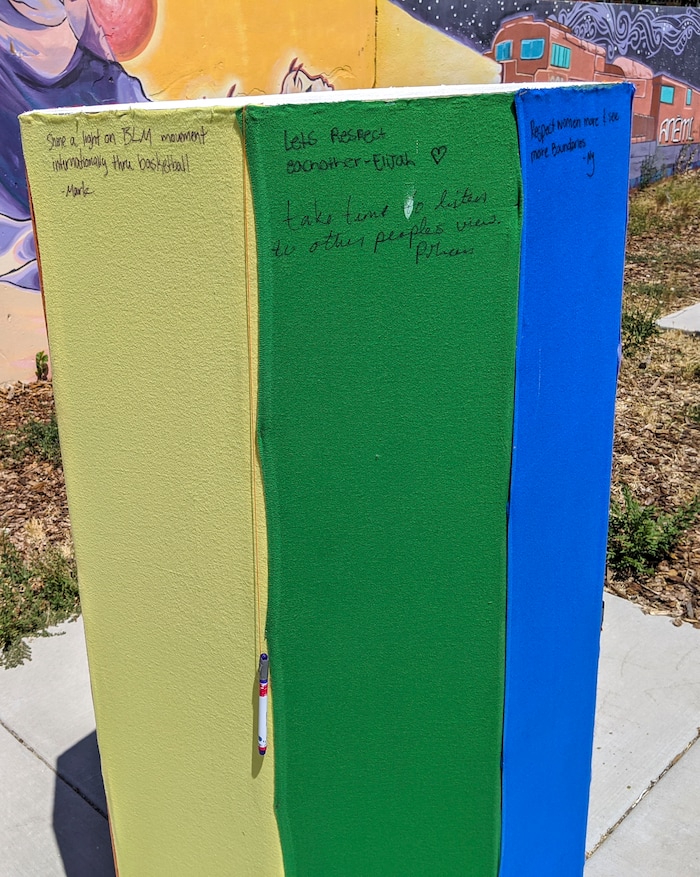 Shine a light on BLM movement
internationally thru basketball
-Mark
Lets Respect
eachother-Elijah ♡
take time to listen
to other peoples views.
Respect women more I see
more Boundaries